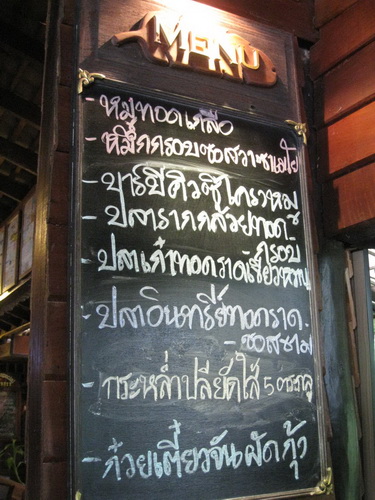 MENU
- หมูทอดเกลือ
- หมึกกรอบซอสวาซาเมโย
- บาร์บีคิวซี่โครงหมู
- ปลารากกล้วยทอด
กรอบ
- ปลาเก๋าทอดราดเขียวหวาน
- ปลาอินทรีย์ทอดราด
- ซอสขาม
- กระหล่ำปลียัดไส้
- ก๋วยเตี๋ยวจันผัดกุ้ง